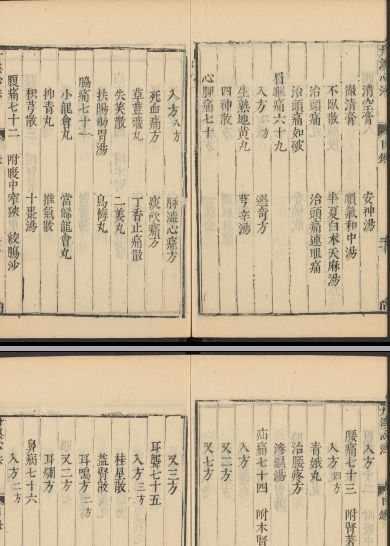 清空膏 安神湯
徹清膏 順氣和中湯
不臥散 半夏白朮天麻湯
治頭痛 治頭痛連眼痛
治頭痛如破
眉眶痛六十九
入方二方 選奇方
生熟地黃丸 芎辛湯
四神散
心脾痛七十
入方八方 脉澁心痛方
死血痛方 痰飲痛方
草荳蔻丸 丁香止痛散
失笑散 二姜丸
扶陽助胃湯 烏梅丸
脇痛七十一
小龍會丸 當歸龍會丸
抑青丸 推氣散
枳芎散 十棗湯
腹痛七十二 附腹中窄狹 絞腸沙
入方十二
腰痛七十三 附腎著
入方四方
青娥丸
治腰疼方
滲濕湯
疝痛七十四 附木腎
入方
又二方
又七方
又三方
耳聾七十五
入方三方
桂星散
益腎散
耳鳴方二方
又二方
耳爛方
鼻病七十六
入方二方